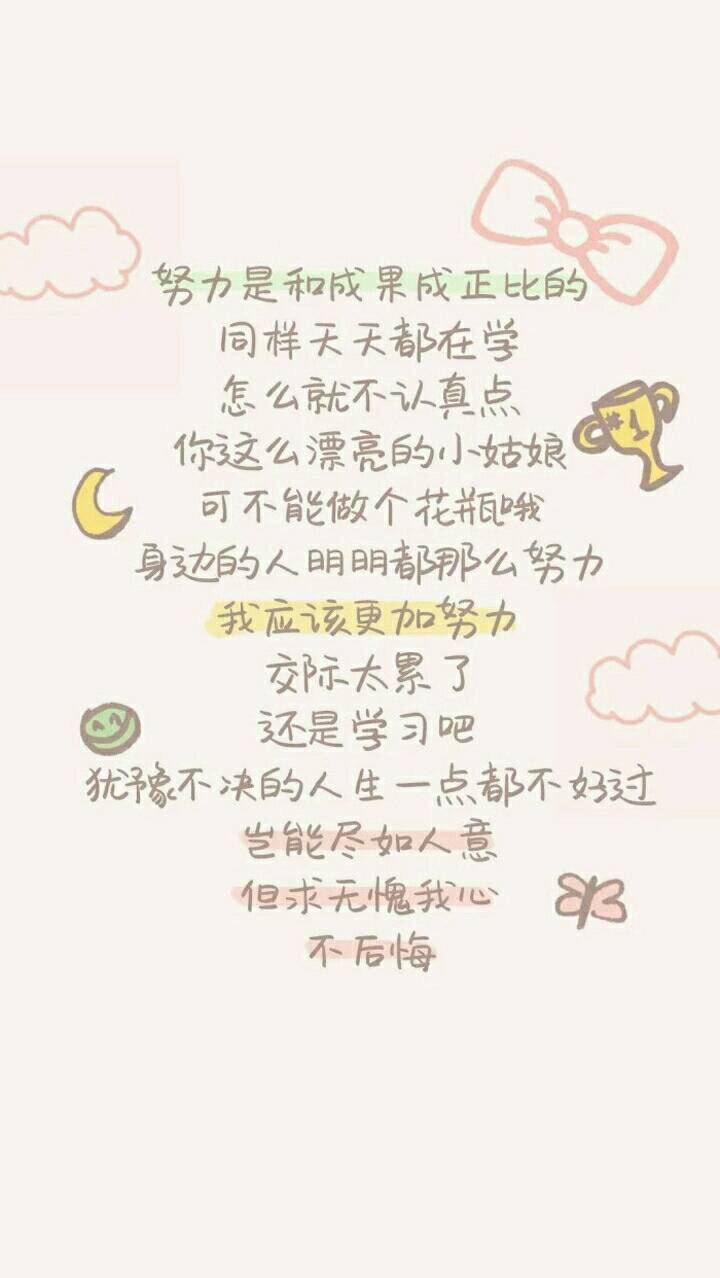 努力是和成果成正比的
同样天天都在学
怎么就不认真点
你这么漂亮的小姑娘
可不能做个花瓶哦
身边的人明明都那么努力
我应该更加努力
交际太累了
还是学习吧
犹豫不决的人生一点都不好过
岂能尽如人意
但求无愧我心
不后悔